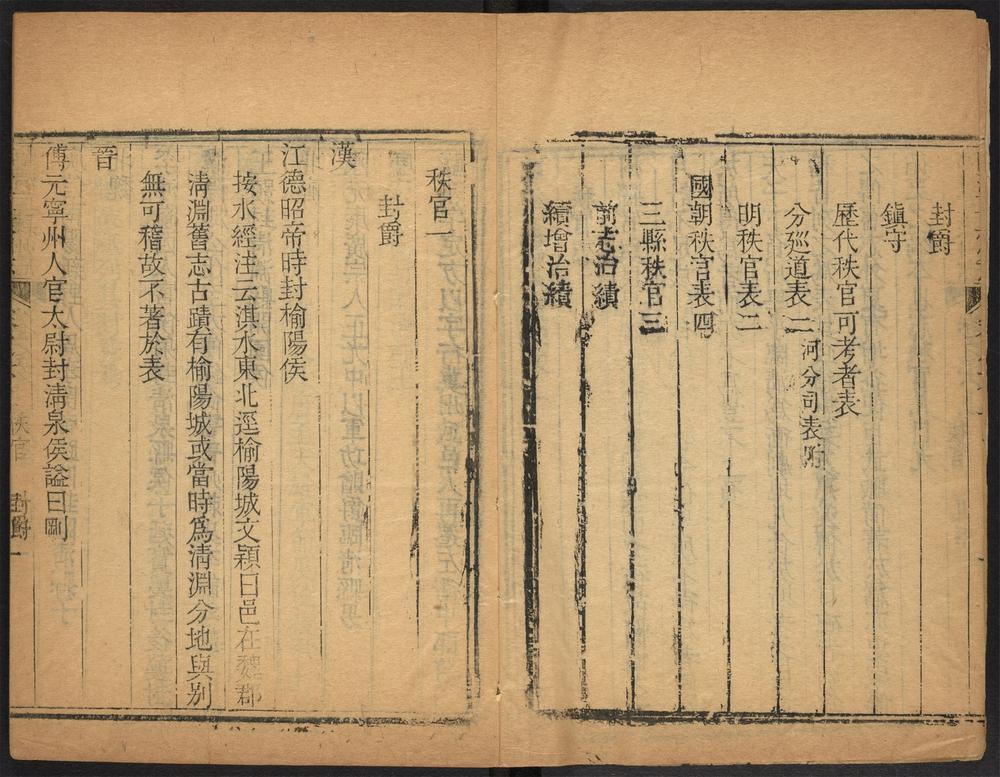 封爵
鎮守
歷代秩官可考者表
分廵道表二 河分司表附
明秩官表二
國朝秩官表四
三縣秩官三
前志治績
續增治績
秩官一
封爵
漢
江德昭帝時封榆陽侯
按水經注云淇水東北逕榆陽城文穎曰邑在魏郡
淸淵舊志古蹟有榆陽城或當時爲淸淵分地與別
無可稽故不著於表
晉
傅元寧州人官太尉封淸泉侯謚曰剛
秩官 封爵一